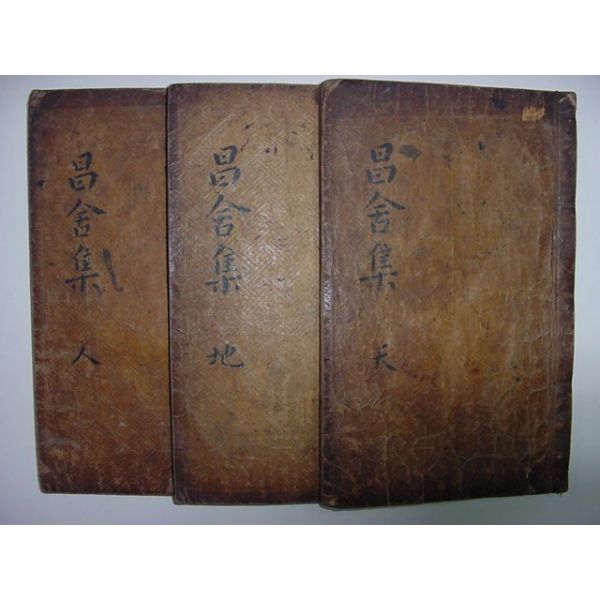 昌舍集 天
昌舍集 地
昌舍集 人